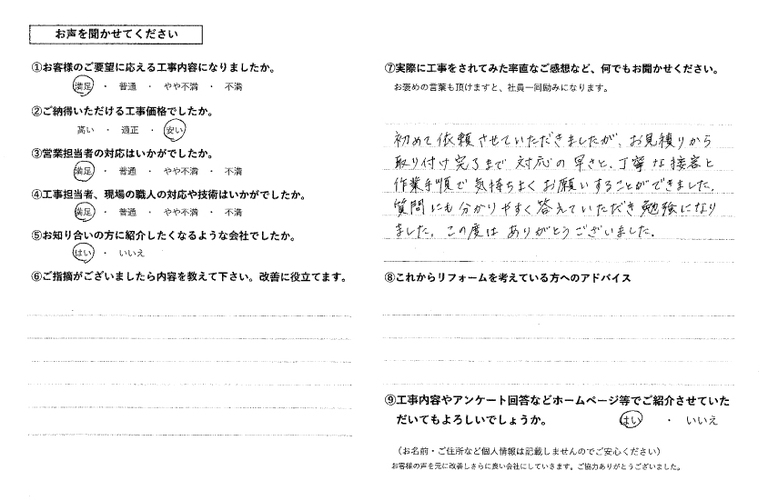 お声を聞かせてください
①お客様のご要望に応える工事内容になりましたか。
満足 ・ 普通 ・ やや不満 ・ 不満
②ご納得いただける工事価格でしたか。
高い ・ 適正 ・ 安い
③営業担当者の対応はいかがでしたか。
満足 ・ 普通 ・ やや不満 ・ 不満
④工事担当者、現場の職人の対応や技術はいかがでしたか。
満足 ・ 普通 ・ やや不満 ・ 不満
⑤お知り合いの方に紹介したくなるような会社でしたか。
はい ・ いいえ
⑥ご指摘がございましたら内容を教えて下さい。改善に役立てます。
⑦実際に工事をされてみた率直なご感想など、何でもお聞かせください。
お褒めの言葉も頂けますと、社員一同励みになります。
初めて依頼させていただきましたが、お見積りから
取り付け完了まで対応の早さと、丁寧な接客と
作業手順で気持ちよくお願いすることができました。
質問にも分かりやすく答えていただき勉強になり
ました。この度はありがとうございました。
⑧これからリフォームを考えている方へのアドバイス
⑨工事内容やアンケート回答などホームページ等でご紹介させていた
だいてもよろしいでしょうか。 はい ・ いいえ
（お名前・ご住所など個人情報は記載しませんのでご安心ください）
お客様の声を元に改善しさらに良い会社にしていきます。ご協力ありがとうございました。